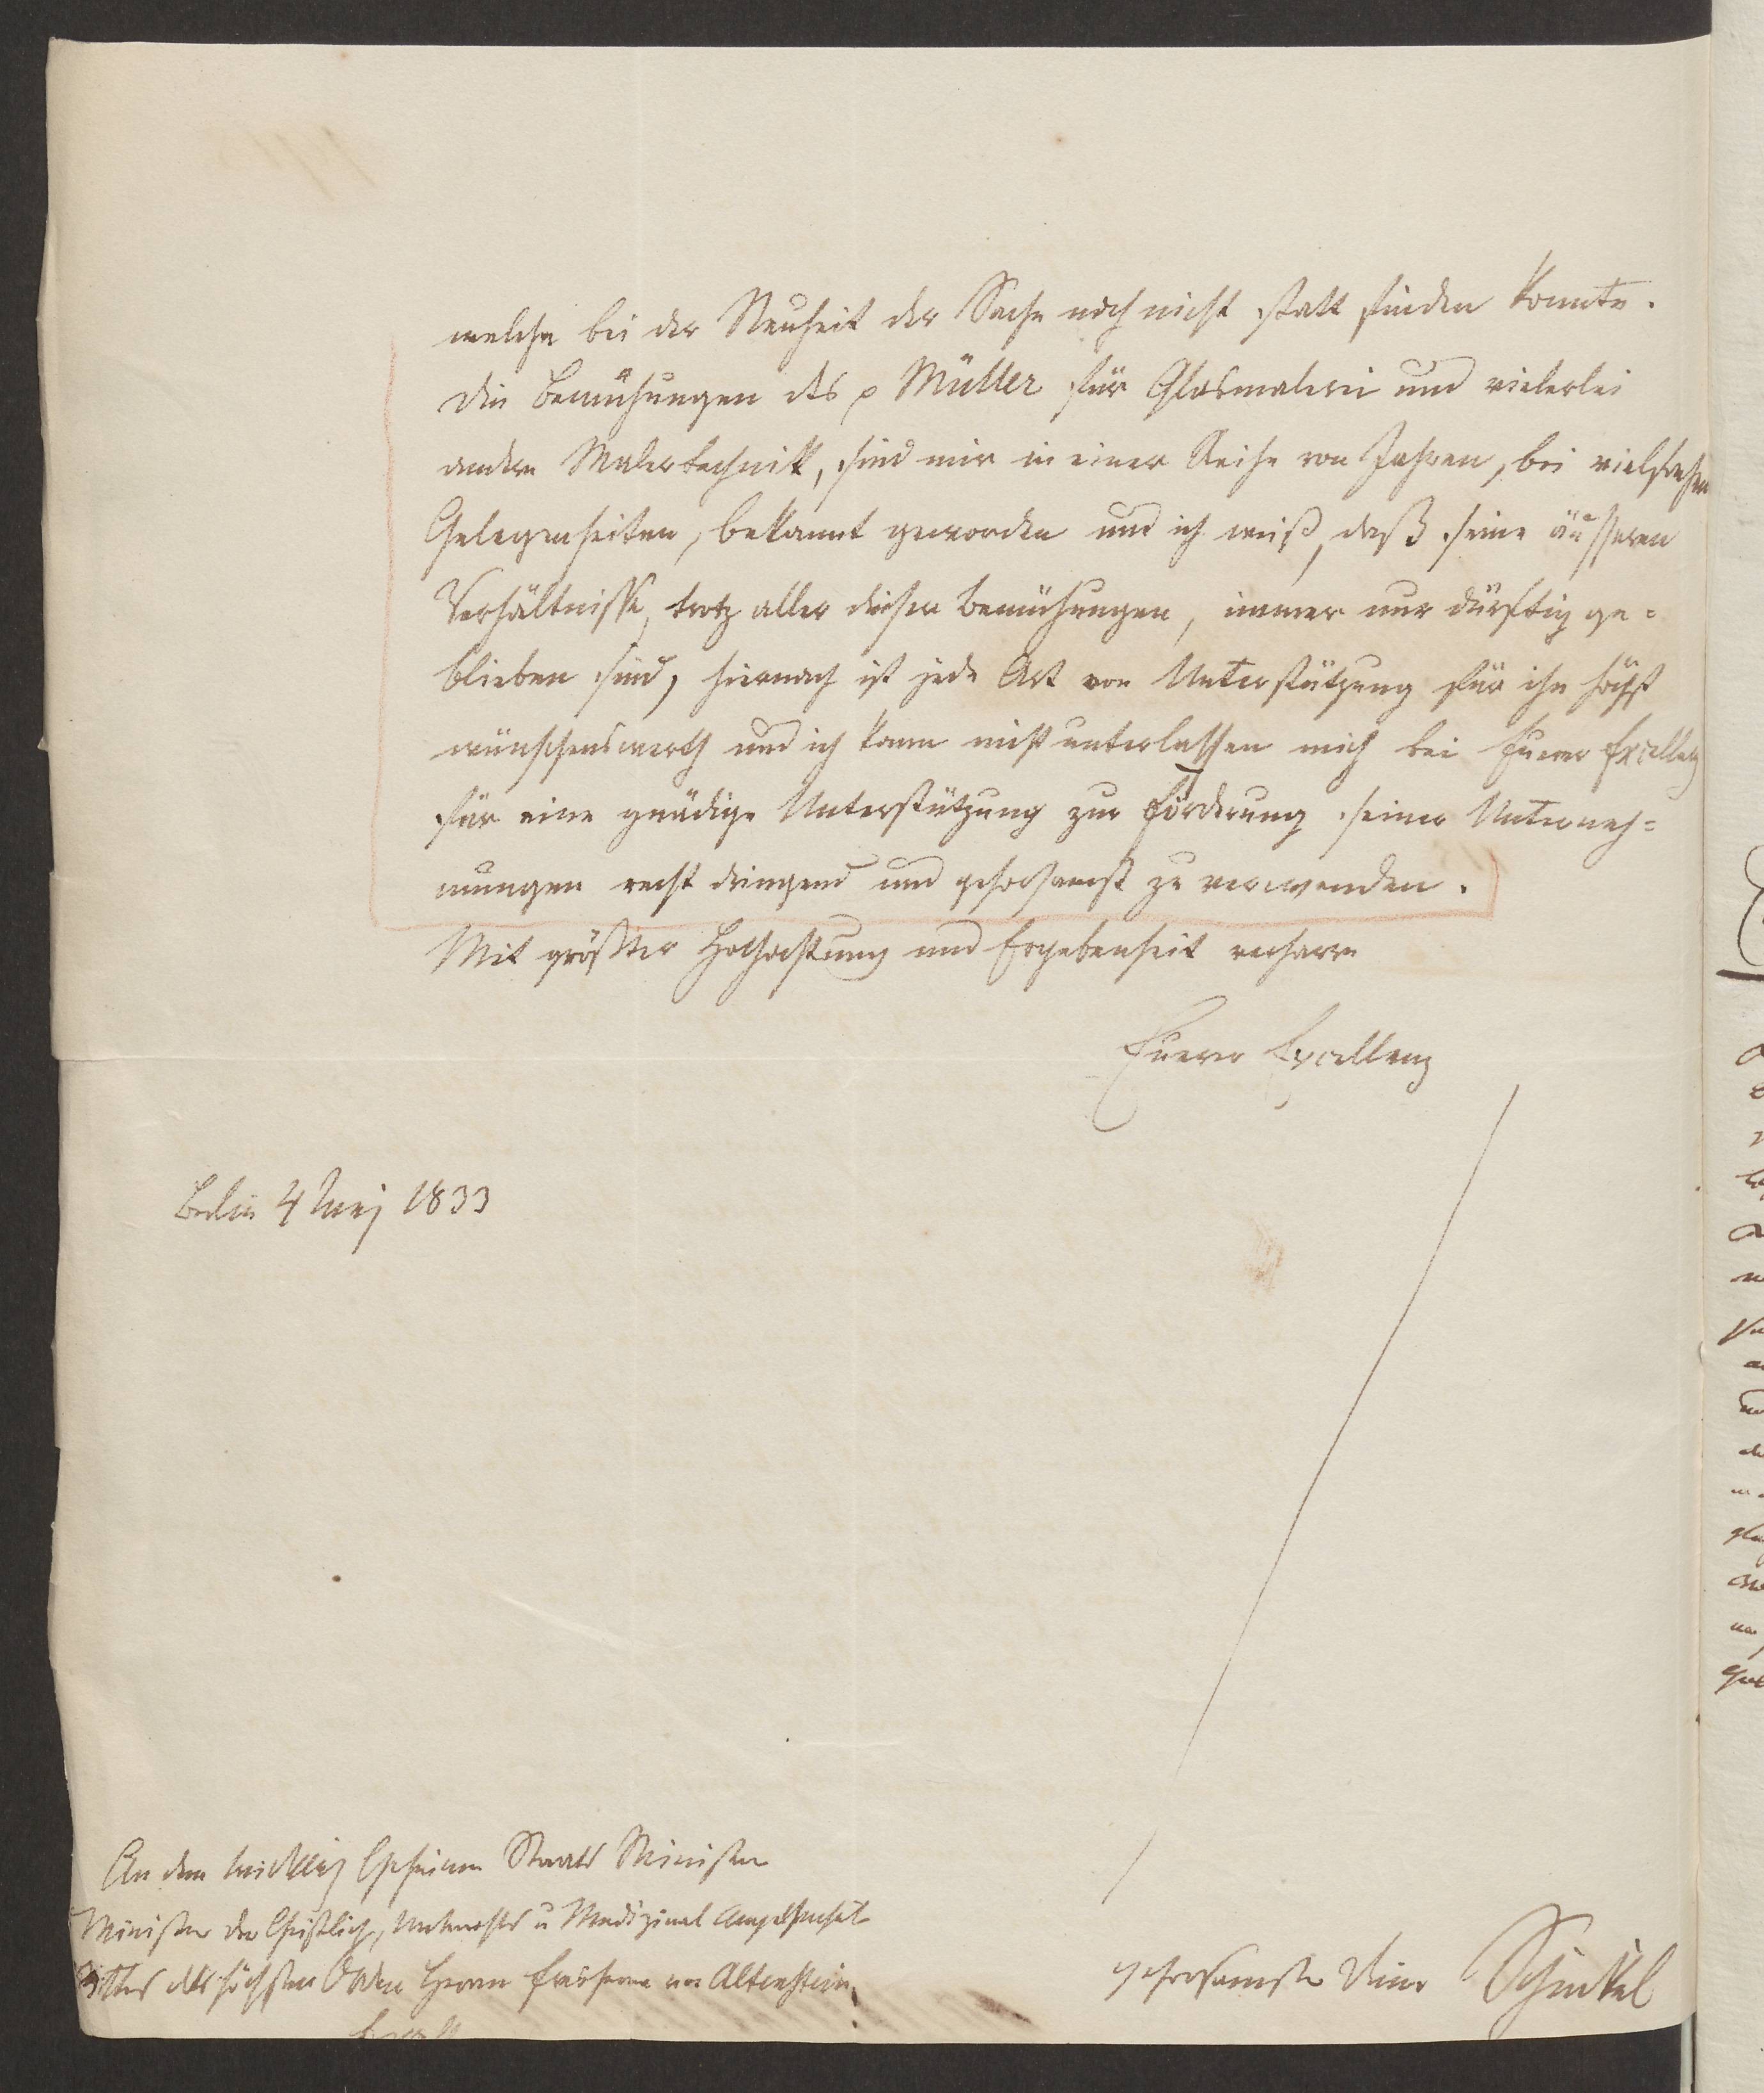 welche bei der Neuheit der Sache noch nicht statt finden konnte.
Die Bemühungen des p Müller für Glasmalerei und vielerlei
andere Malertechnik, sind mir in einer Reihe von Jahren, bei vielfachen
Gelegenheiten, bekannt geworden und ich weiß, daß seine äusseren
Verhältnisse, trotz aller dieser Bemühungen, immer nur dürftig ge-
blieben sind, hiernach ist jede Art von Unterstützung für ihn höchst
wünschenswerth und ich kann nicht unterlassen mich bei Euerer Excellenz
für eine gnädige Unterstützung zur Förderung seiner Unterneh-
mungen recht dringend und gehorsamst zu verwenden.
Mit größter Hochachtung und Ergebenheit verharre
Euerer Excellenz
Berlin 4 May 1833
An den wirklich Geheimen Staats Minister
Minister der Geistlich, Unterrichts u Medizinal Angelegenheit
Ritter des höchsten Orden Herrn Freiherrn von Altenstein
Excell
gehorsamster Diener Schinkel